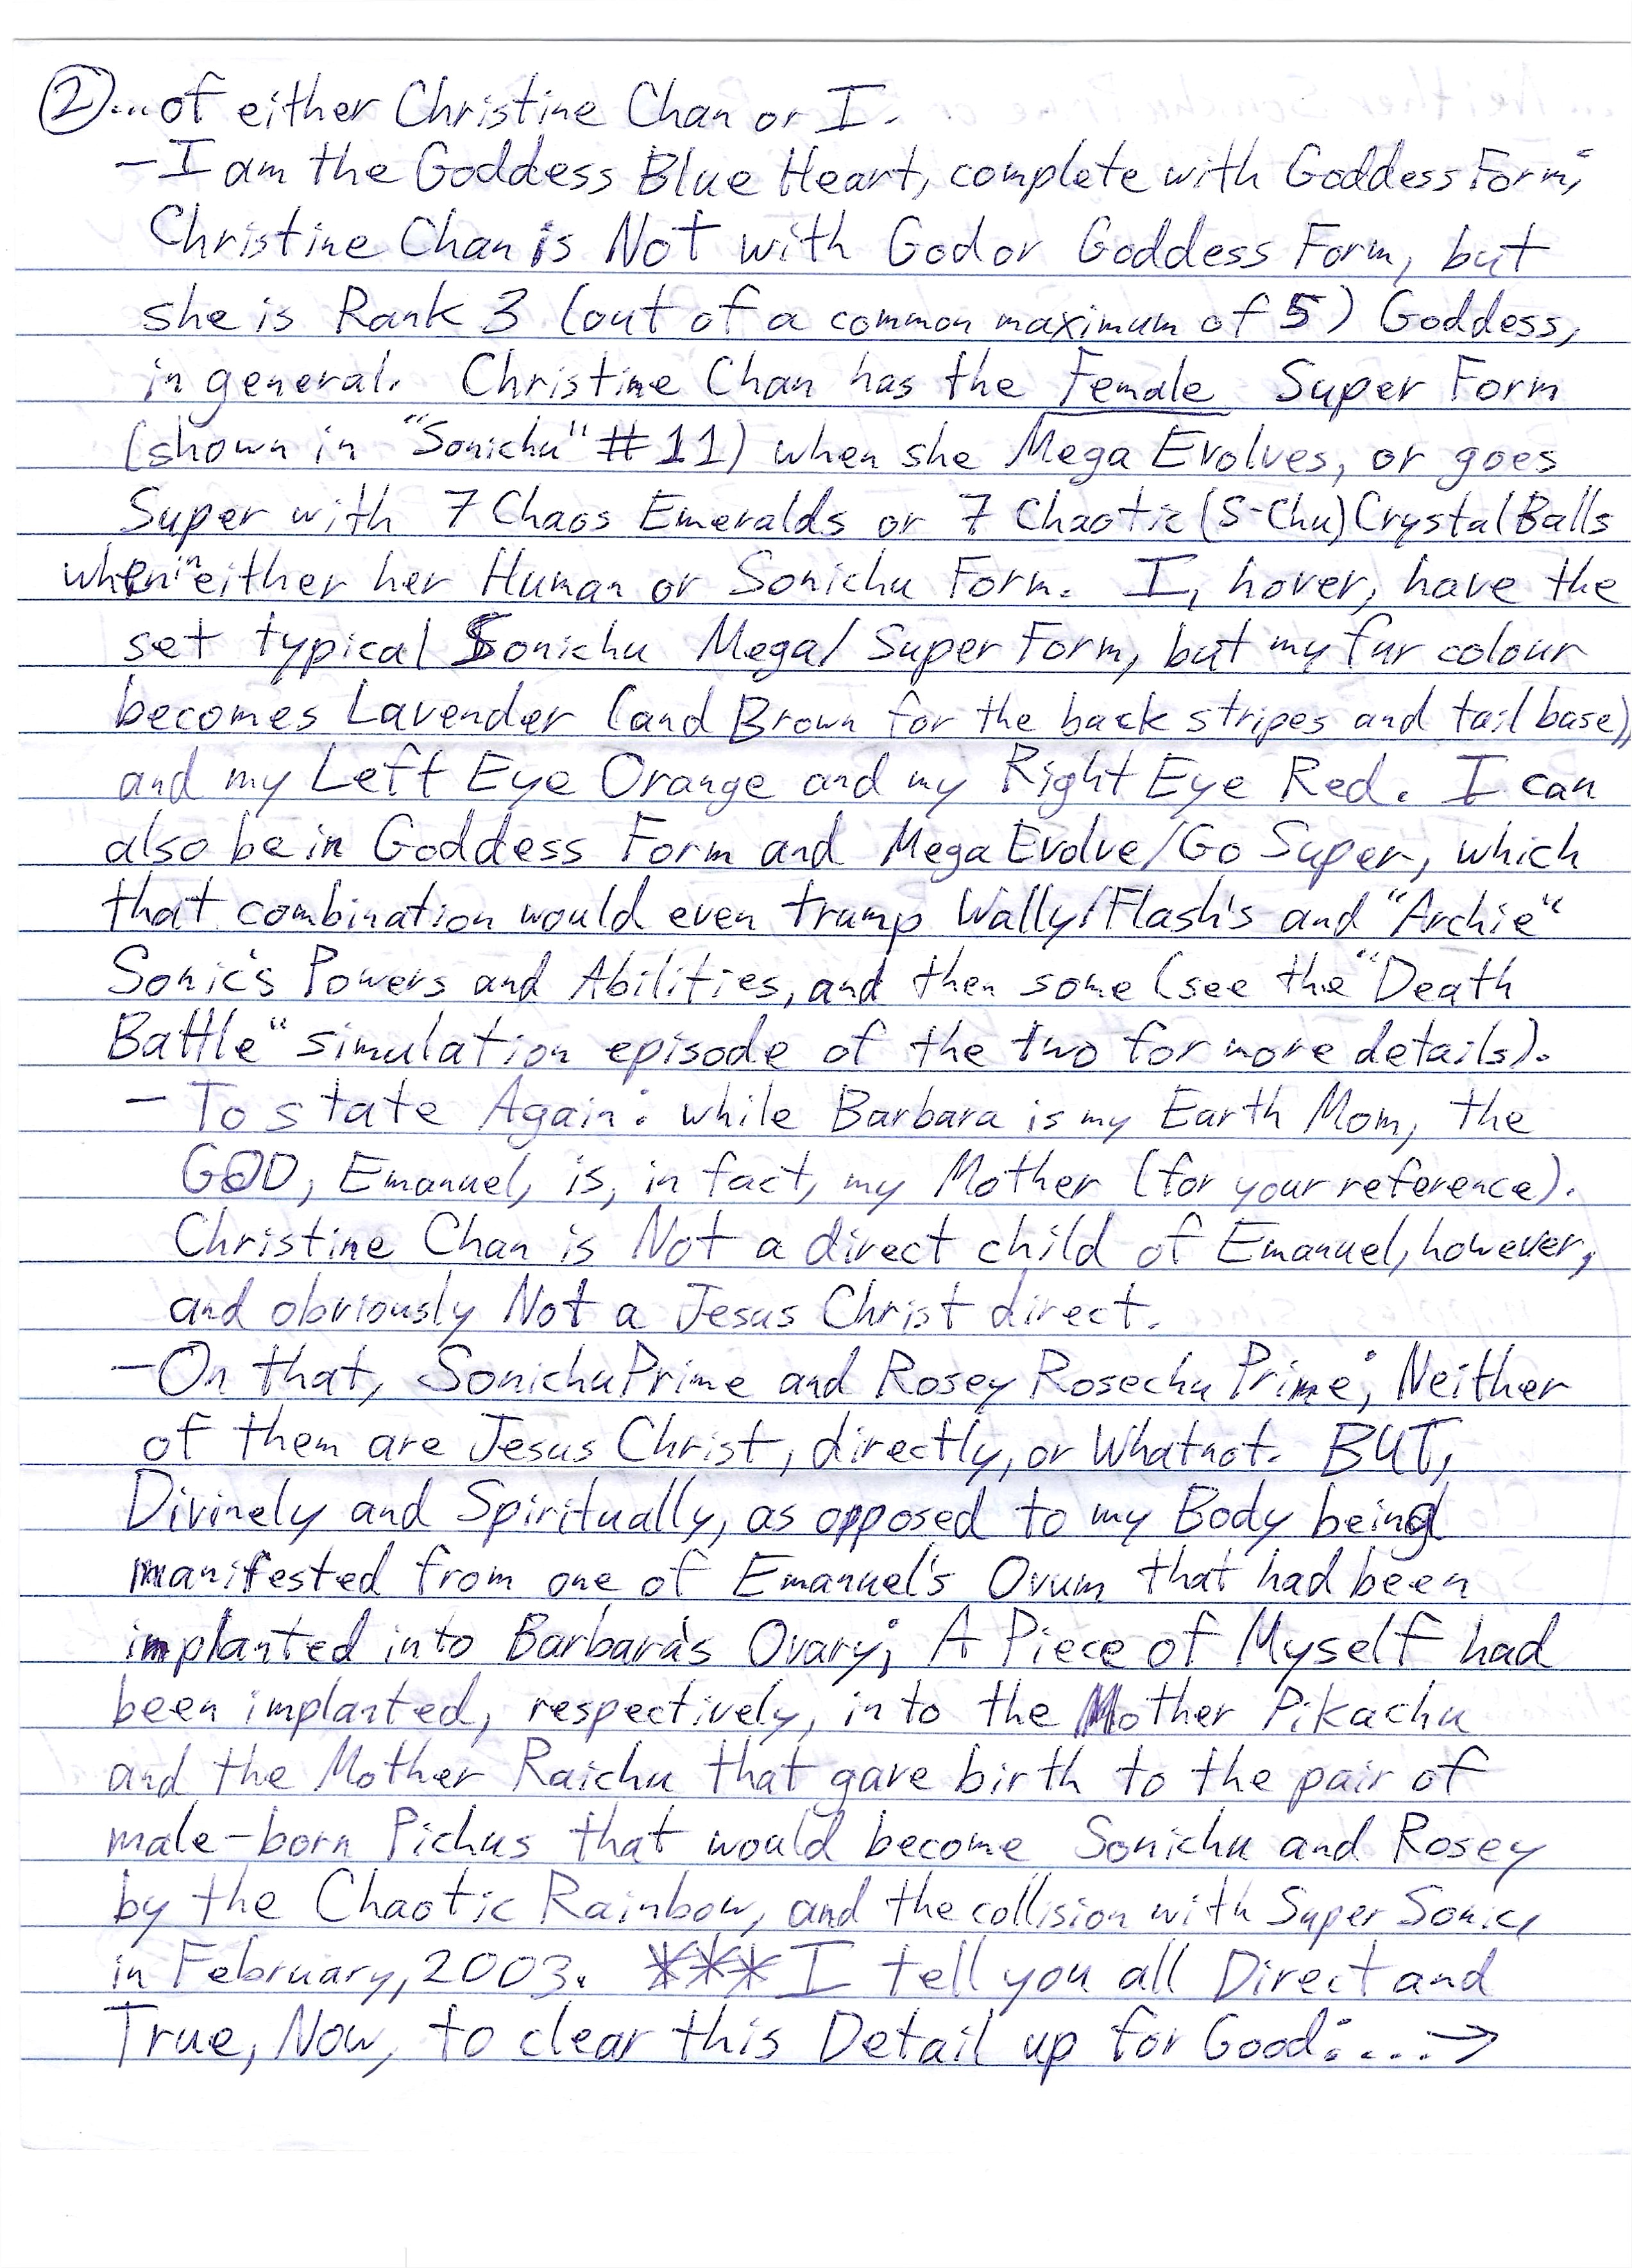 ② ...of either Christine Chan or I.
- I am the Goddess Blue Heart, complete with Goddess Form;
Christine Chan is Not with God or Goddess Form, but
she is Rank 3 (out of a common maximum of 5) Goddess,
in general. Christine Chan has the Female Super Form
(shown in "Sonichu" #11) when she Mega Evolves, or goes
Super with 7 Chaos Emeralds or 7 Chaotic (S-Chu) Crystal Balls
when in either her Human or Sonichu Form. I, hover, have the
set typical Sonichu Mega/Super Form, but my fur colour
becomes Lavender (and Brown for the back stripes and tail base),
and my Left Eye Orange and my Right Eye Red. I can
also be in Goddess Form and Mega Evolve/Go Super, which
that combination would even trump Wally/Flash's and "Archie"
Sonic's Powers and Abilities, and then some (see the "Death
Battle" simulation episode of the two for more details).
- To state Again: while Barbara is my Earth Mom, the
GOD, Emanuel, is, in fact, my Mother (for your reference).
Christine Chan is Not a direct child of Emanuel, however,
and obviously Not a Jesus Christ direct.
- On that, Sonichu Prime and Rosey Rosechu Prime; Neither
of them are Jesus Christ, directly, or Whatnot. BUT,
Divinely and Spiritually, as opposed to my Body being
manifested from one of Emanuel's Ovum that had been
implanted into Barbara's Ovary; A Piece of Myself had
been implanted, respectively, into the Mother Pikachu
and the Mother Raichu that gave birth to the pair of
male-born Pichus that would become Sonichu and Rosey
by the Chaotic Rainbow, and the collision with Super Sonic,
in February, 2003. *** I tell you all Direct and
True, Now, to clear this Detail up for Good: ... →